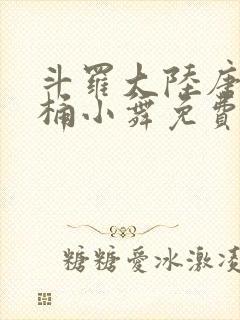 斗羅大陸唐
桶小舞免費
糖糖愛冰激凌